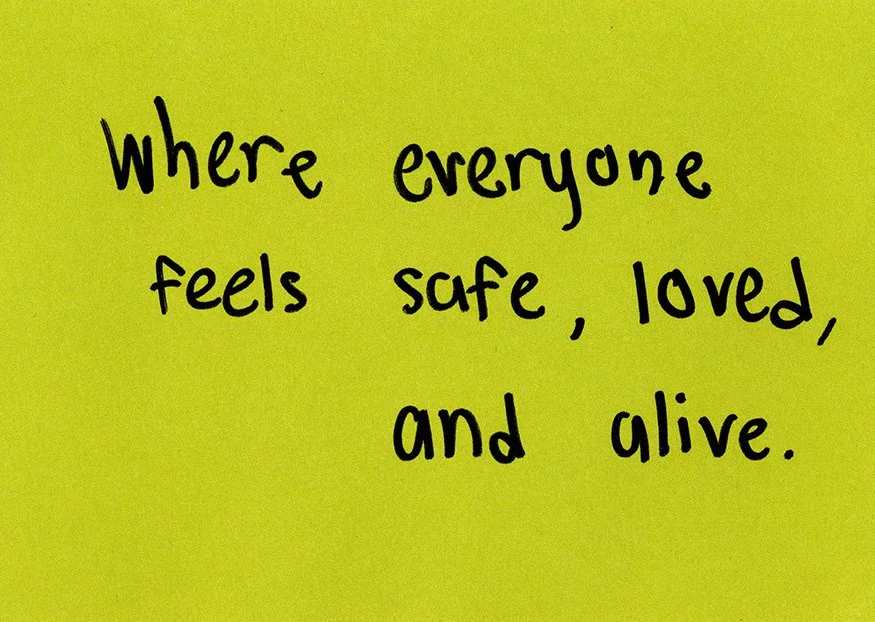 where everyone
feels safe, loved,
and alive.